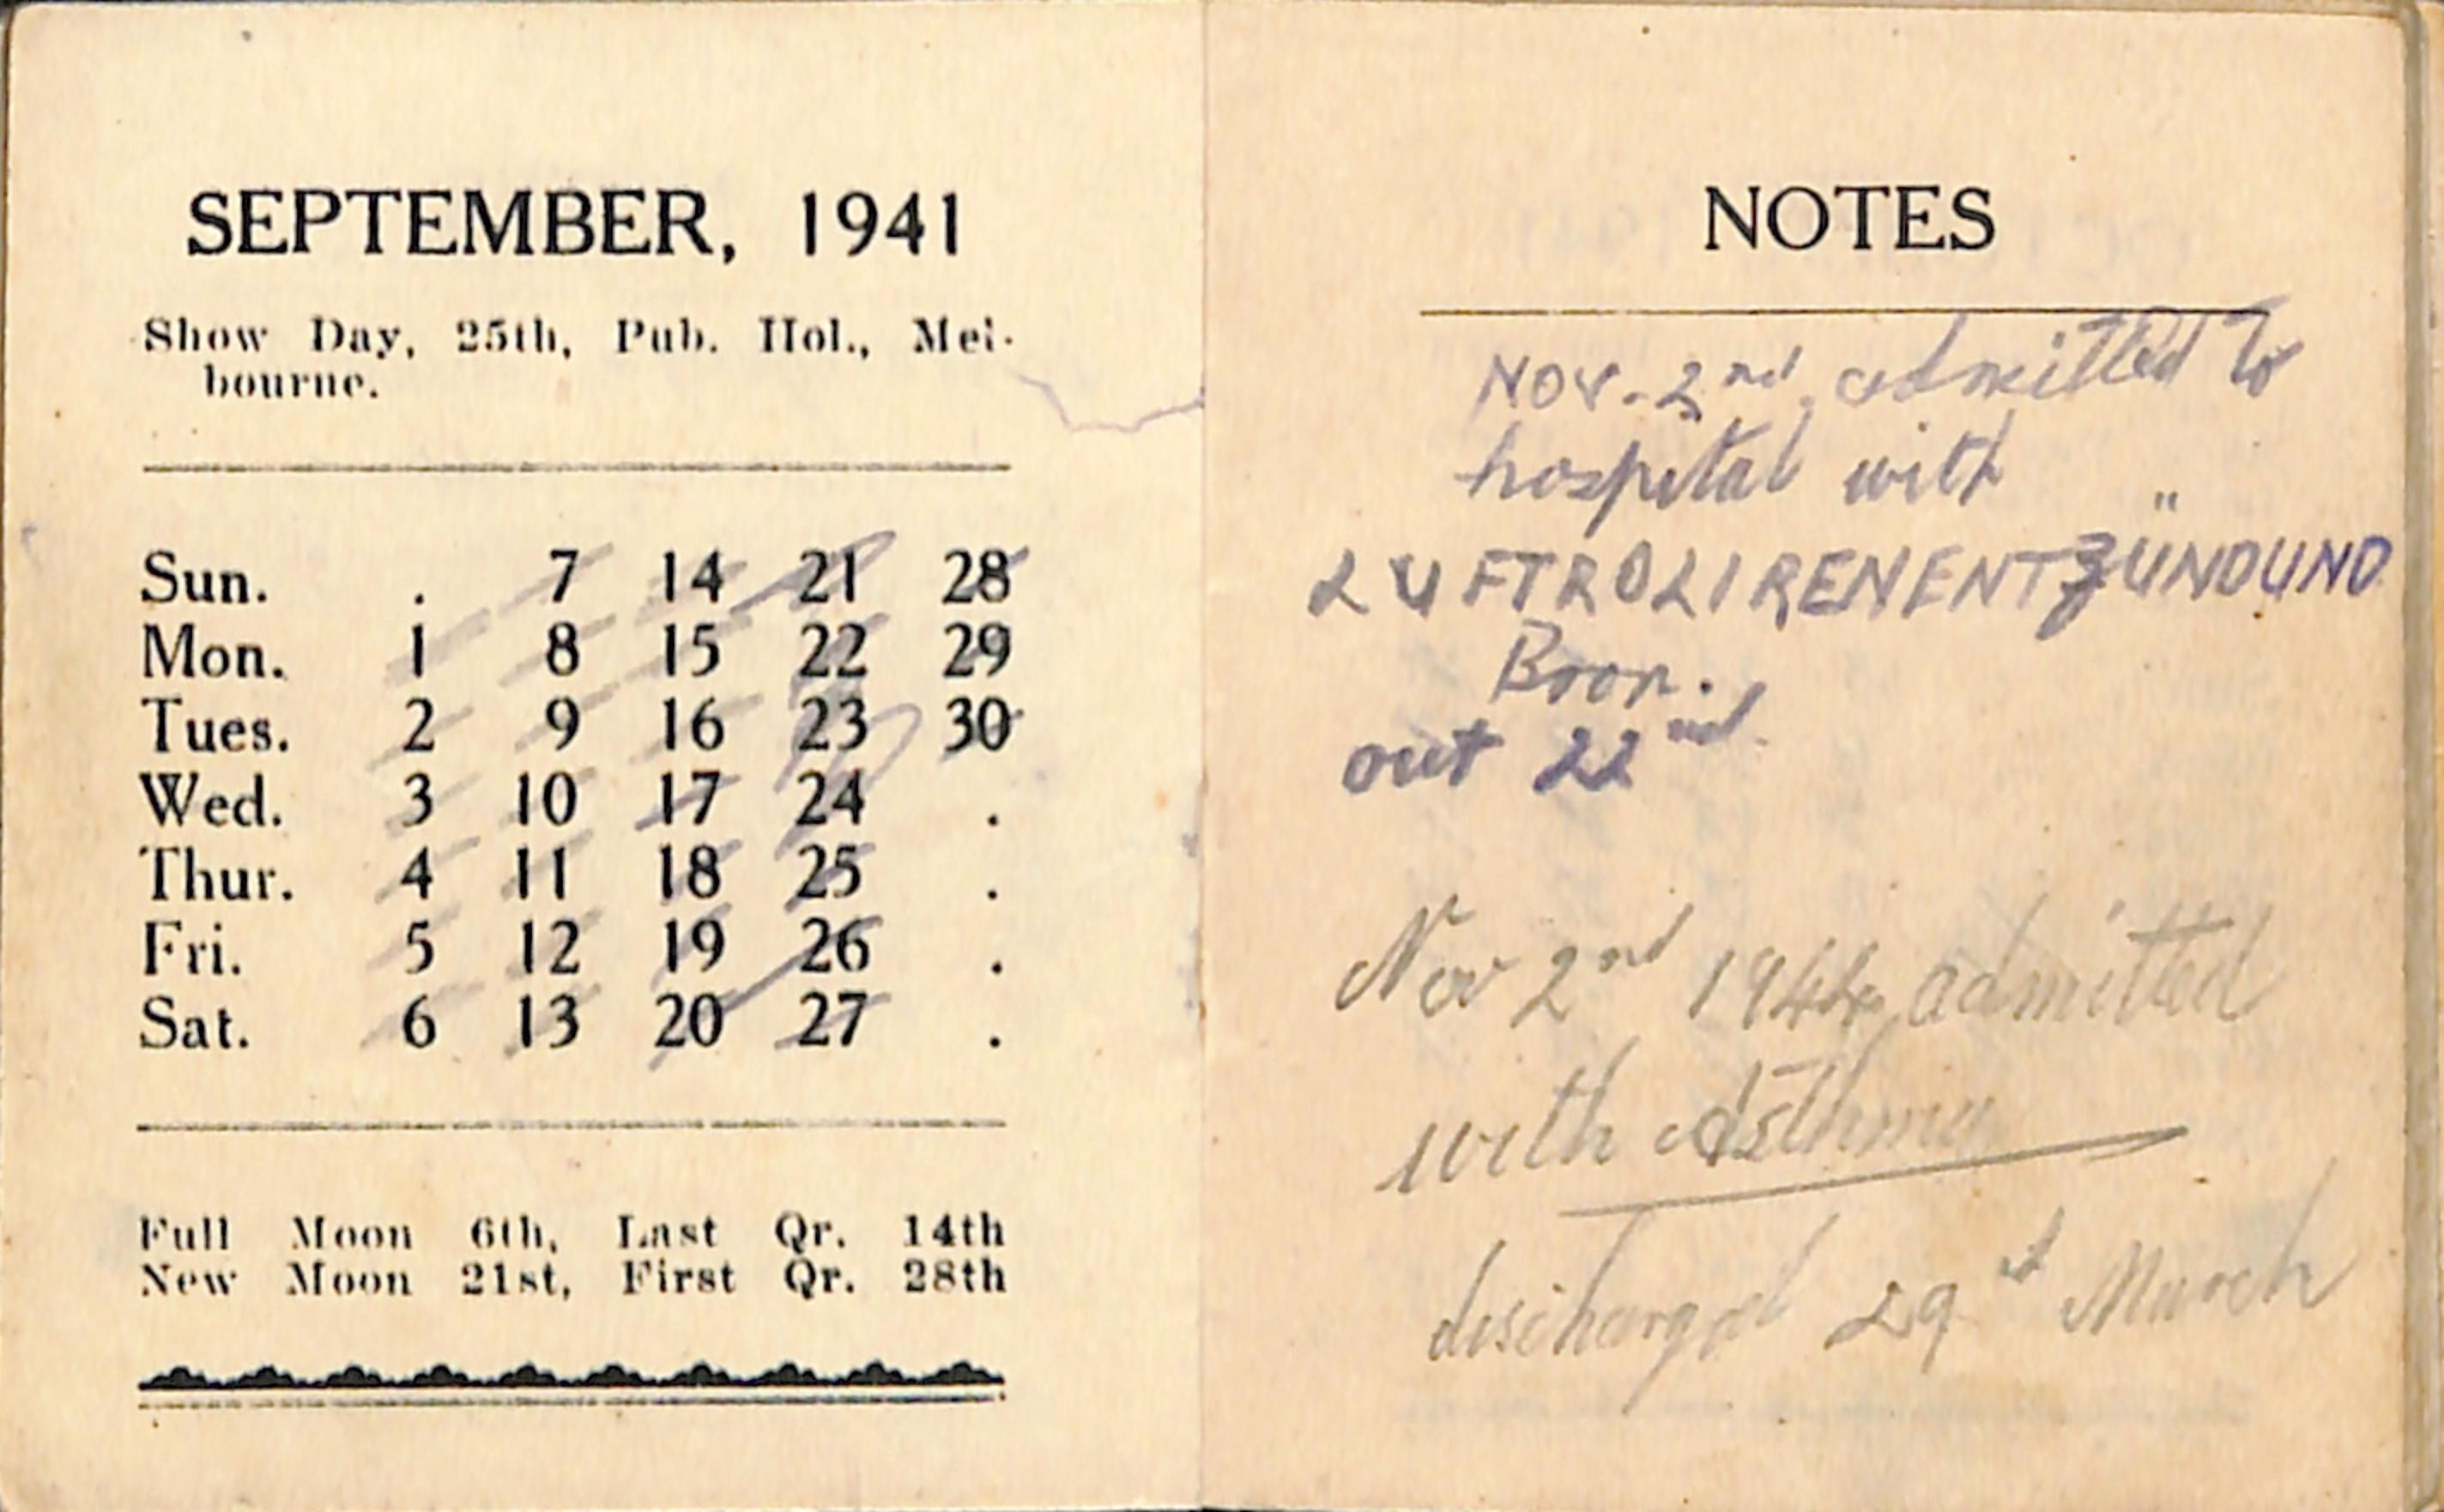 SEPTEMBER, 1941
Show Day, 25th, Pub. Hol., Mel-
bourne.
Sun. . 7 14 21 28
Mon. 1 8 15 22 29
Tues. 2 9 16 23 30
Wed. 3 10 17 24 .
Thur. 4 11 18 25 .
Fri. 5 12 19 26 .
Sat. 6 13 20 27 .
Full Moon 6th, Last Qr. 14th
New Moon 21st, First Qr. 28th
NOTES
NOV. 2nd, admitted to
hospital with
LUFTROLIRENENTZÜNDUND
Bron.
out 22nd
Nov 2nd 1944 admitted
with Asthma
discharged 29st March